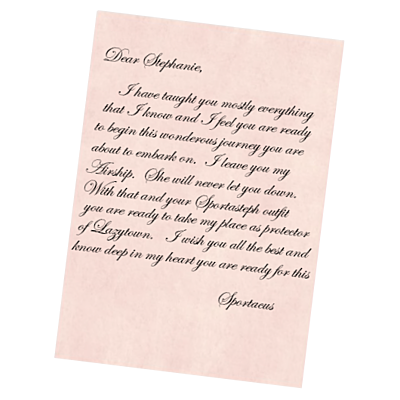 Dear Stephanie,
I have taught you mostly everything
that I know and I feel you are ready
to begin this wonderous journey you are
about to embark on. I leave you my
Airship. She will never let you down.
With that and your Sportasteph outfit
you are ready to take my place as protector
of Lazytown. I wish you all the best and
know deep in my heart you are ready for this
Sportacus